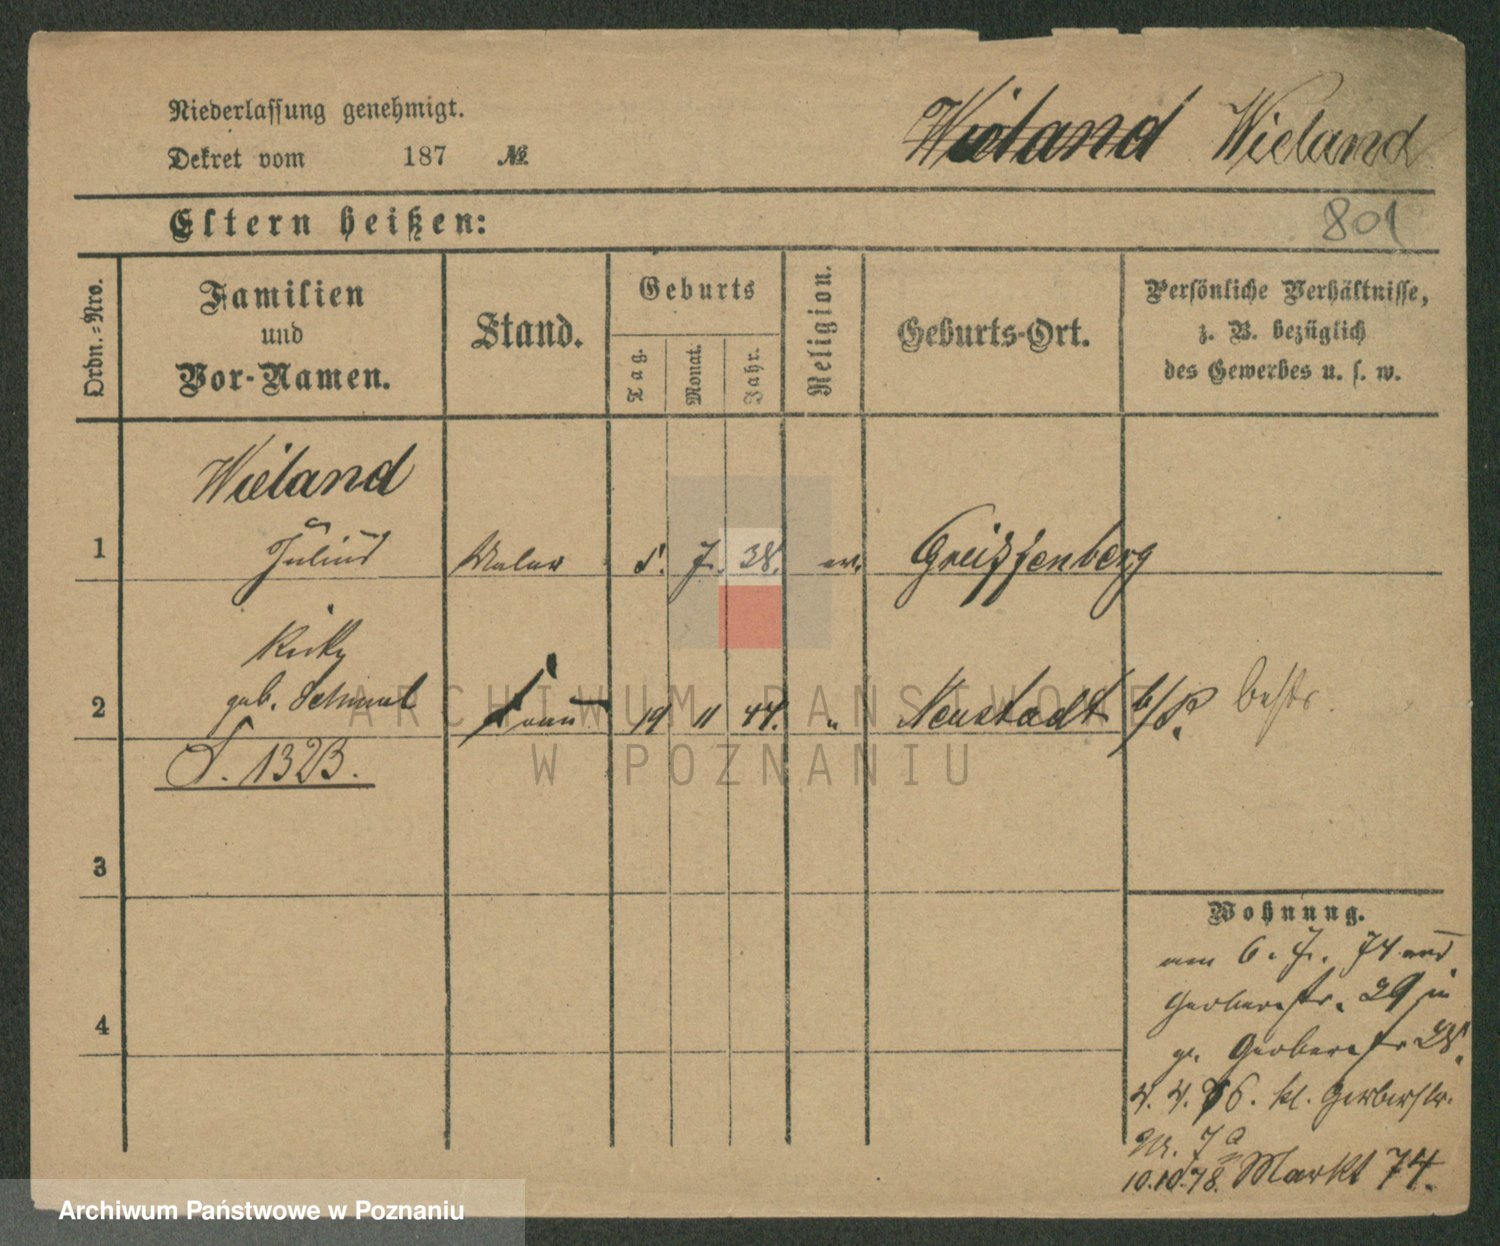 Niederlassung genehmigt.
Dekret vom 187 №
Wieland Wieland
Eltern heißen:
801
Ordn.-Nro.
Familien
und
Vor-Namen.
Stand.
Geburts
Tag.
Monat.
Jahr.
Religion.
Geburts-Ort.
Persönliche Verhältnisse,
z. B. bezüglich
des Gewerbes u. s. w.
Wieland
1 Julius Maler 5. 7. 38. ev. Greiffenberg
2 geb. Frau 19 11 44. " Neustadt b/P.
S. 1323.
3
Wohnung.
am 6. 7. 74
Gerberstr. 29
gr. Gerberstr 28.
4
4. 4. 76. kl. Gerberstr.
Nr. 7a
10.10.78. Markt 74.
ARCHIWUM PAŃSTWOWE
W POZNANIU
Archiwum Państwowe w Poznaniu